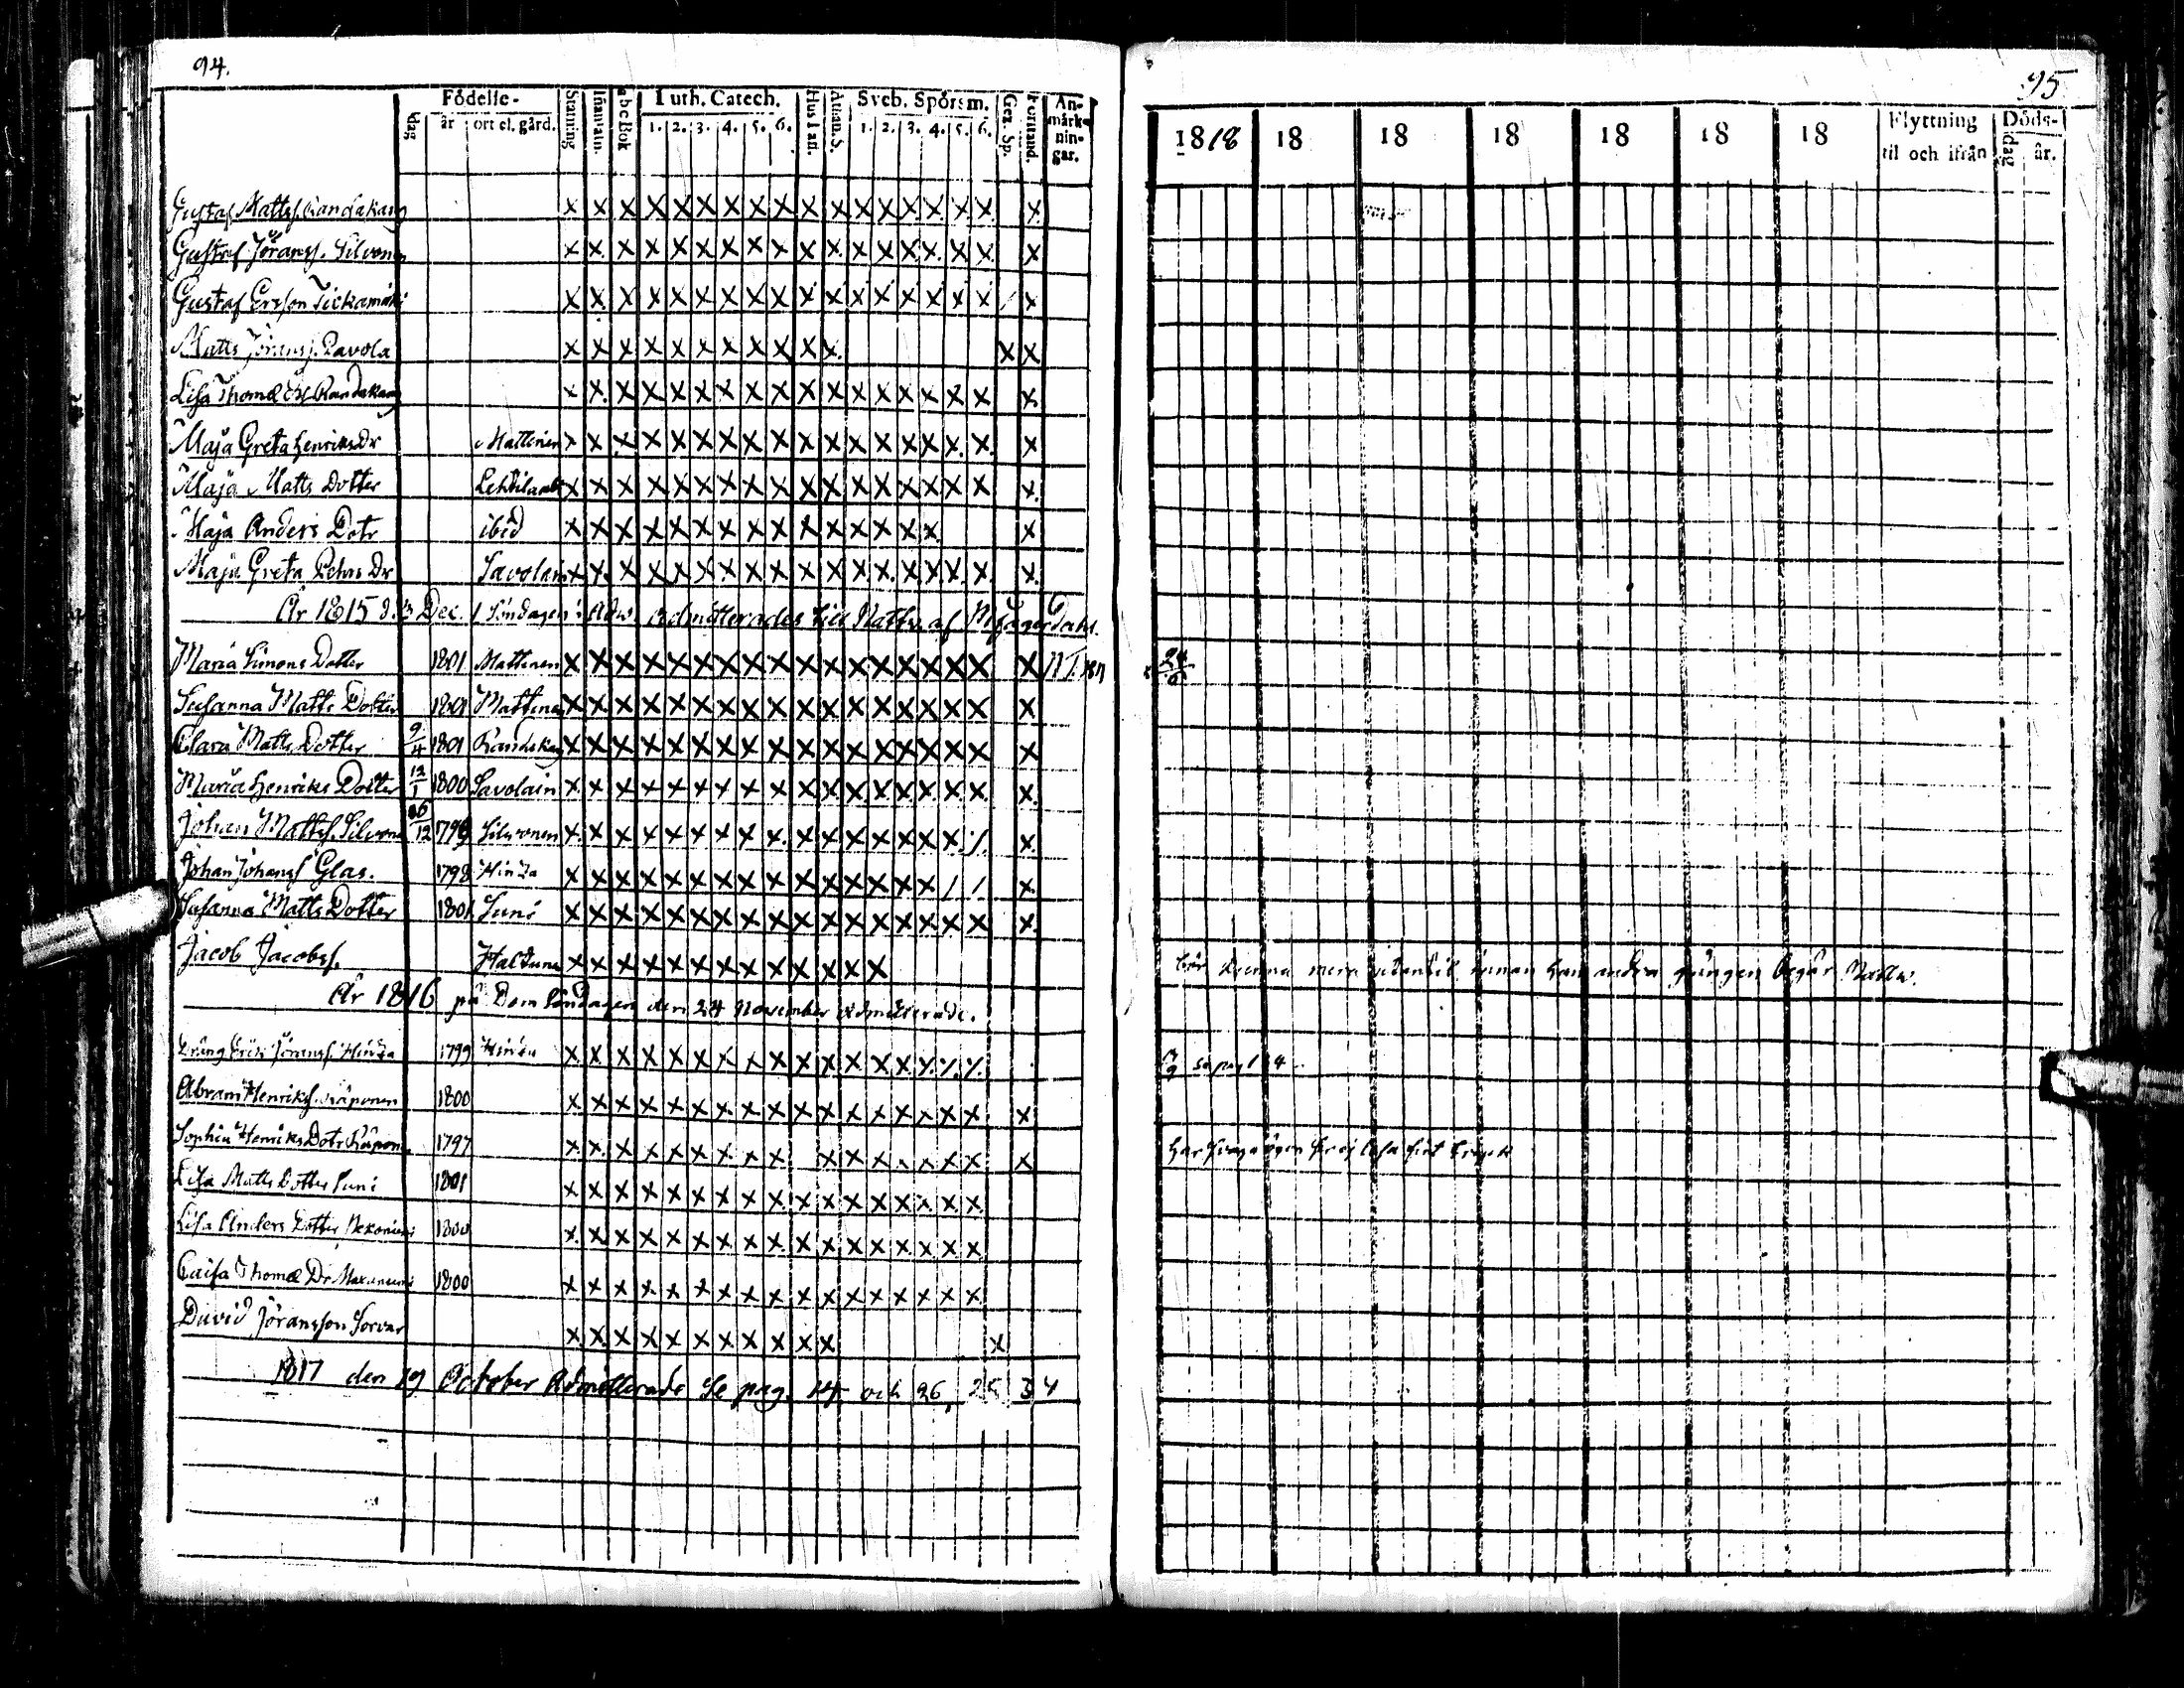 94.
Födelse-
dag
år
ort el. gård.
Stafning
Innantn.
abc Bok
Luth. Catech.
1. 2. 3. 4. 5. 6.
Hus Tafl.
Athan. S.
Sveb. Spörsm.
1. 2. 3. 4. 5. 6.
Gez. Sp.
Förstånd.
An-
märk-
nin-
gar.
Gustaf Mattss. Randakang x x x x x x x x x x x x x x x x x x
Gustaf Jöranss. Silvonen x x x x x x x x x x x x x x x x x x
Gustaf Ersson Tickamäki x x x x x x x x x x x x x x x x x / x
Matts Jöranss. Pavola x x x x x x x x x x x x x
Lisa Thomæ Dr Randakang x x x x x x x x x x x x x x x x x x
Maja Greta Henriks Dr Mattinen x x x x x x x x x x x x x x x x x x
Maja Matts Dotter x x x x x x x x x x x x x x x x x x
Maja Anders Dotr ibid x x x x x x x x x x x x x x x x
Maja Greta Pehrs Dr Savolain x x x x x x x x x x x x x x x x x x
År 1815 d. 3 Dec. 1 Söndagen i Adw. admitterades till Nattv. af
Maria Simons Dotter 1801 Mattinen x x x x x x x x x x x x x x x x x x
Susanna Matts Dotter 1801 Mattinen x x x x x x x x x x x x x x x x x x
Clara Matts Dotter 9/4 1801 Randakang x x x x x x x x x x x x x x x x x x
Maria Henriks Dotter 12/1 1800 Savolain x x x x x x x x x x x x x x x x x x
Johan Mattss. Silvonen 26/12 1799 Silwonen x x x x x x x x x x x x x x x x ·/. x
Johan Johanss Glas. 1798 Hinza x x x x x x x x x x x x x x x / / x
Susanna Matts Dotter 1801 Suni x x x x x x x x x x x x x x x x x x
Jacob Jacobss. Haltune x x x x x x x x x x x x x
År 1816 på Dom Söndagen den 24 November admitterade.
Dräng Erik Jöranss. Hinza 1799 Hinza x x x x x x x x x x x x x x ·/. ·/. ·/.
Abram Henrikss. Räponen 1800 x x x x x x x x x x x x x x x x x x
Sophia Henriks Dotr Räponen 1797 x x x x x x x x x x x x x x x x x
Lisa Matts Dotter Suni 1801 x x x x x x x x x x x x x x x x x
Lisa Anders Dotter 1800 x x x x x x x x x x x x x x x x x
Caisa Thomæ Dr 1800 x x x x x x x x x x x x x x x x x
David Jöransson Sorvar x x x x x x x x x x x x
1817 den 19 October Admitterade Se pag. och 26, 25 34
95
1818 18 18 18 18 18 18
Flyttning
til och ifrån
Döds-
dag
år.
24/6
bör kunna mera utantil innan han andra gången begår Nattw.